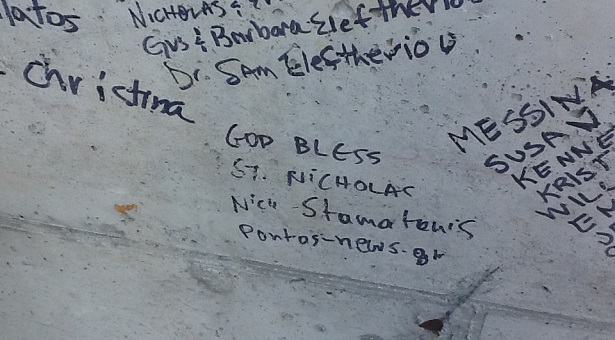 NICHOLAS &
Gus & Barbara Eleftheriou
Dr. SAM Eleftheriou
Christina
GOD BLESS
ST. NICHOLAS
Nick Stamatouis
Pontos-news.gr
MESSINA
SUSAN
KENNE
KRISTE
WIL